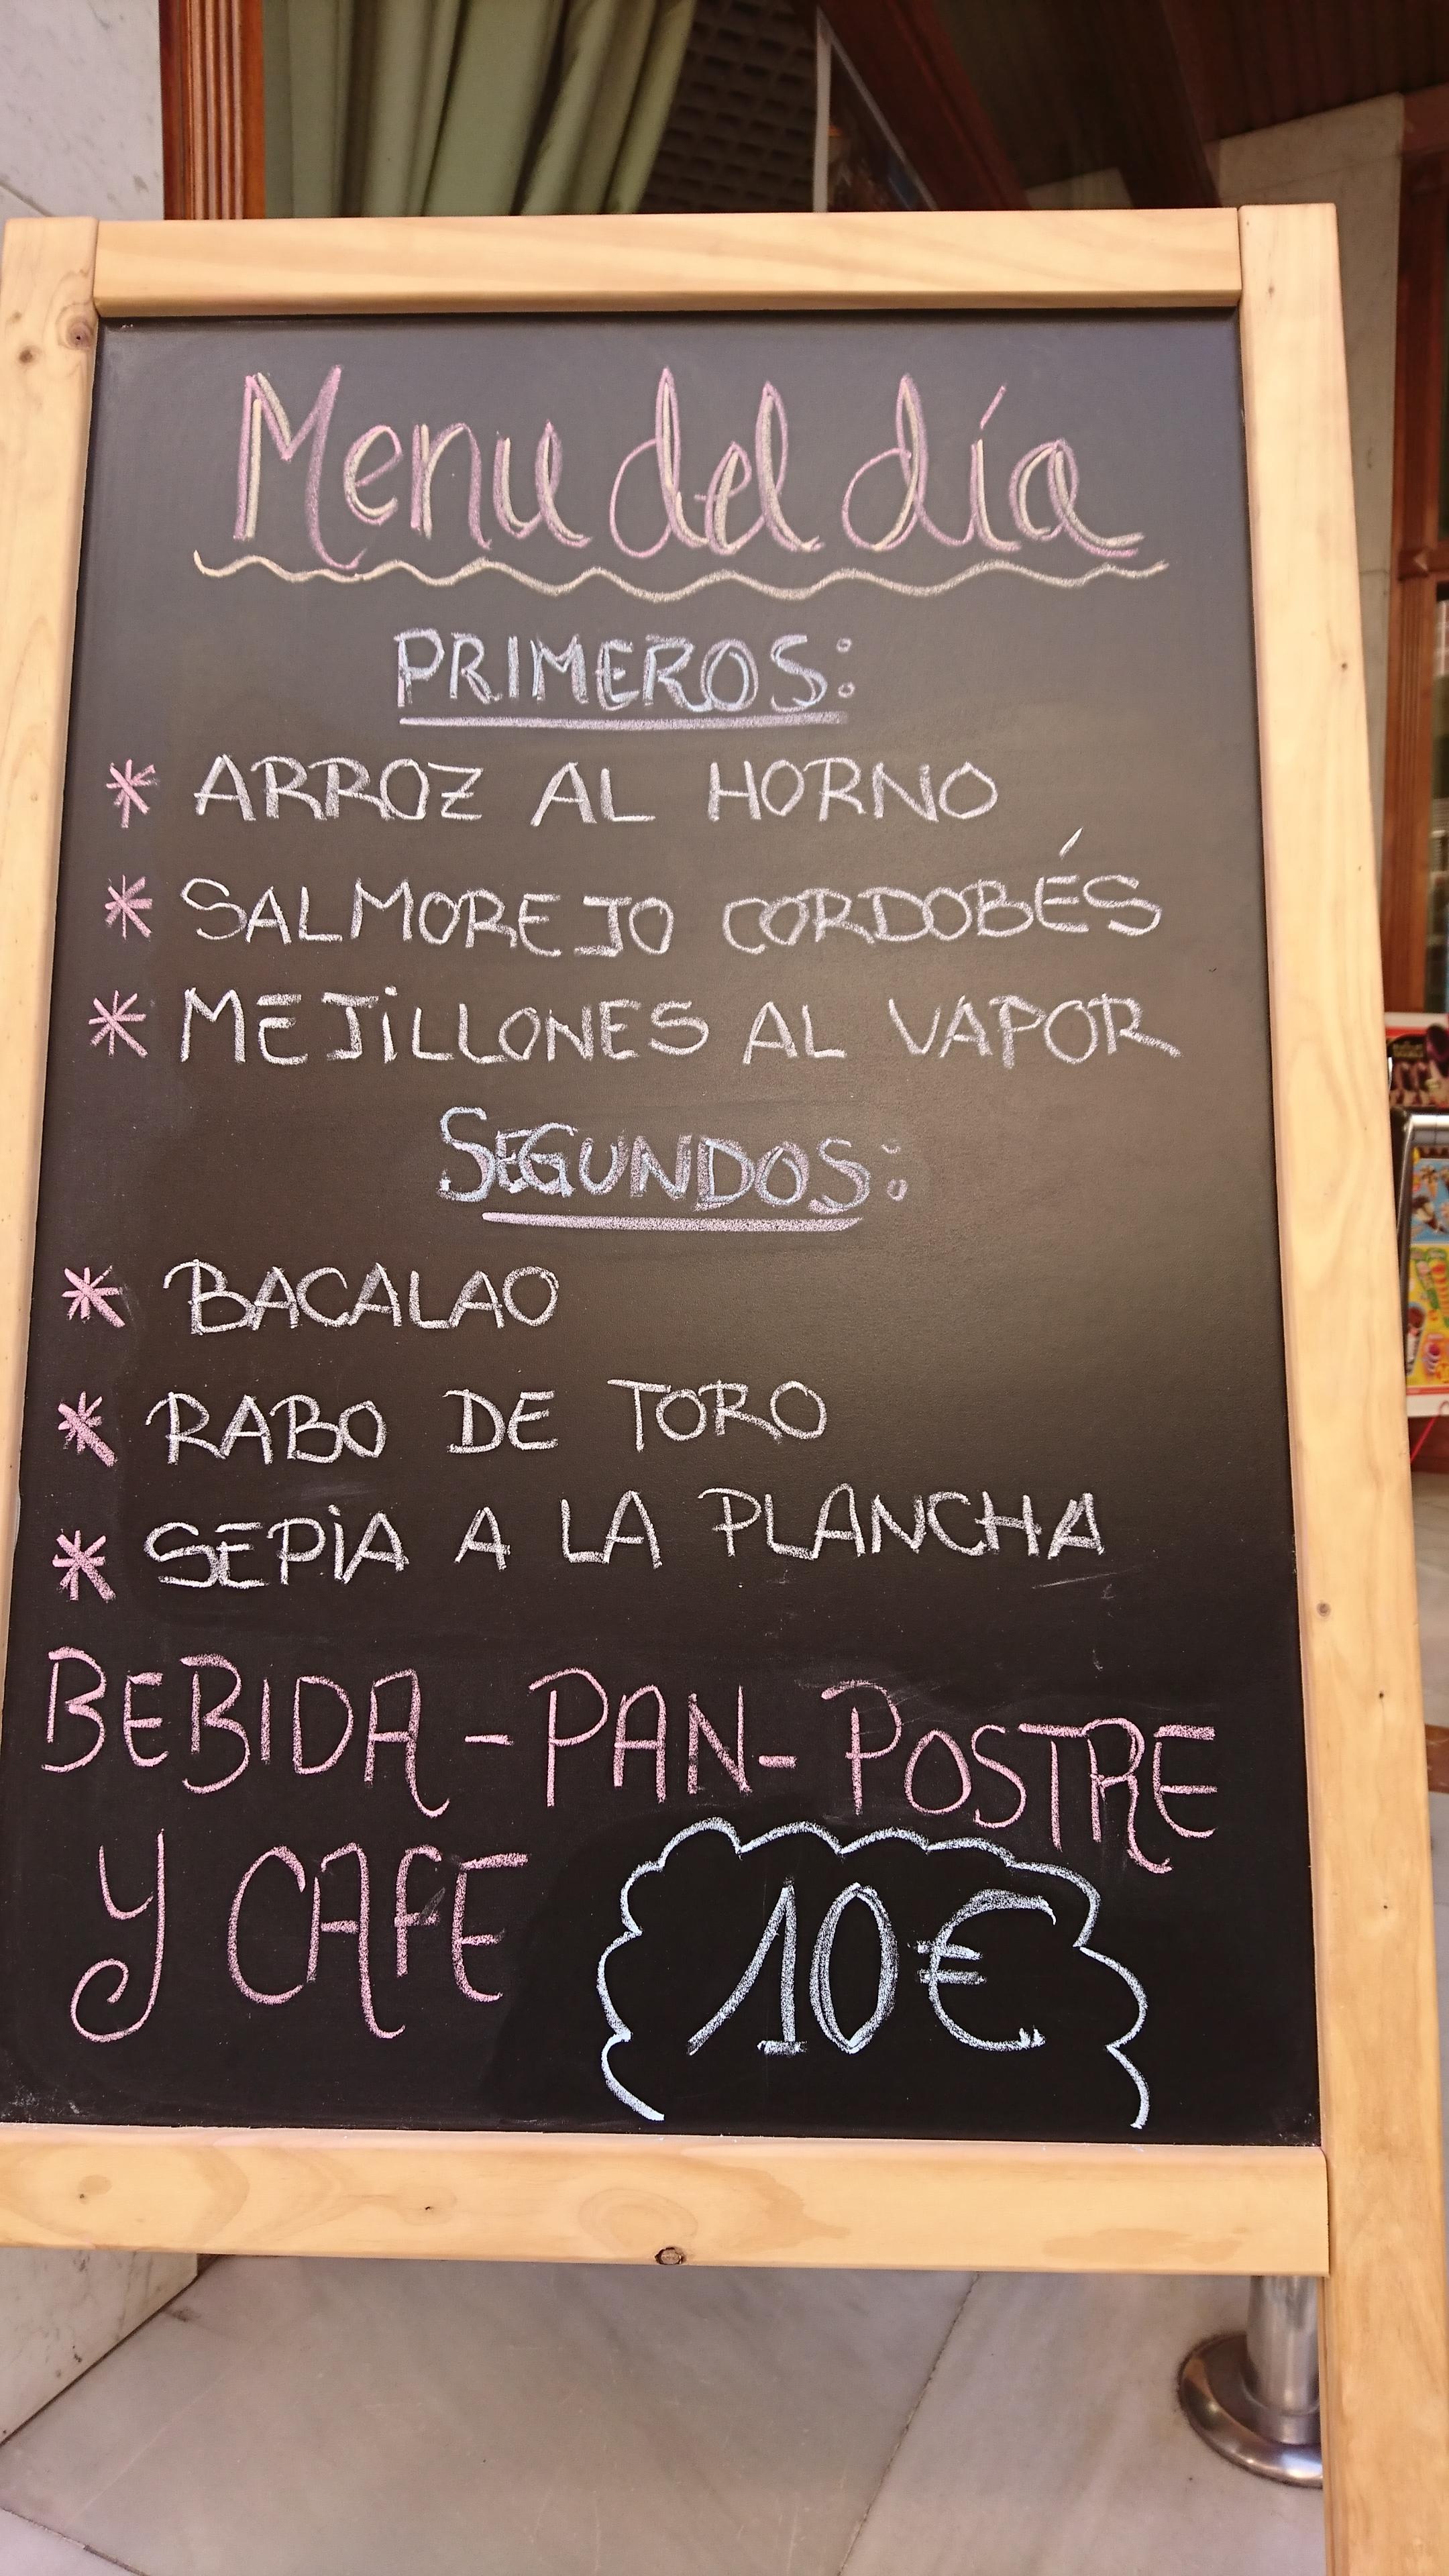 Menu del día
PRIMEROS:
* ARROZ AL HORNO
* SALMOREJO CORDOBÉS
* MEJiLLONES AL VAPOR
SEGUNDOS:
* BACALAO
* RABO DE TORO
* SEPiA A LA PLANCHA
BEBIDA - PAN - POSTRE
Y CAFE
10€